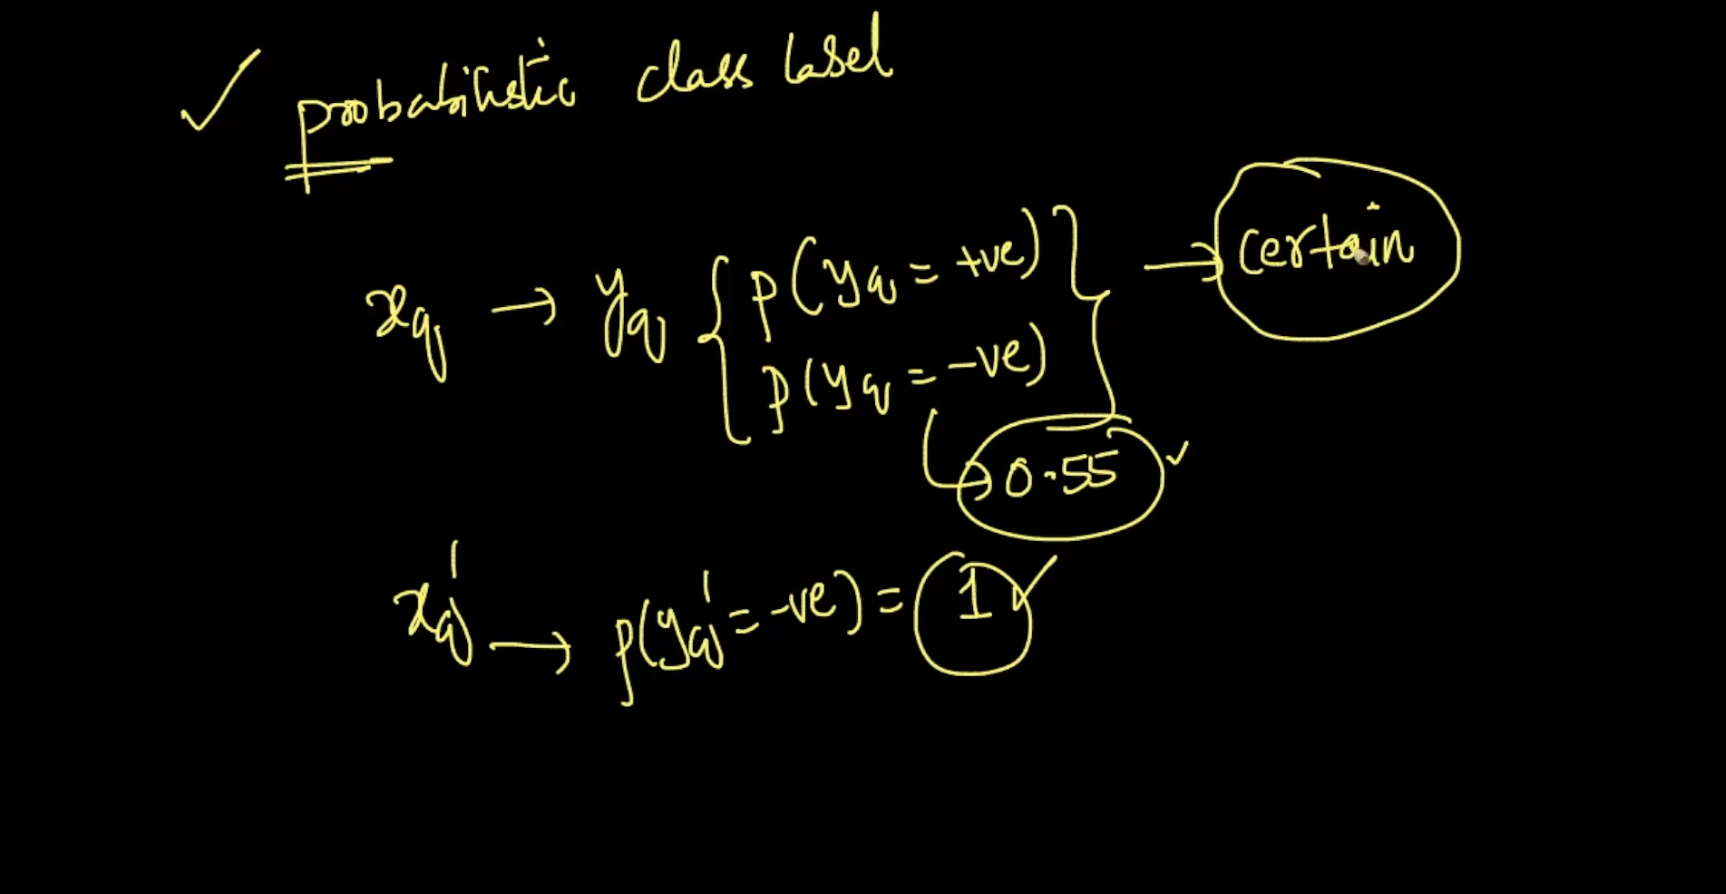 ✓ probabilistic class label
xq → yq { p(yq = +ve) } → certain
p(yq = -ve)
→ 0.55 ✓
xq' → p(yq' = -ve) = 1 ✓